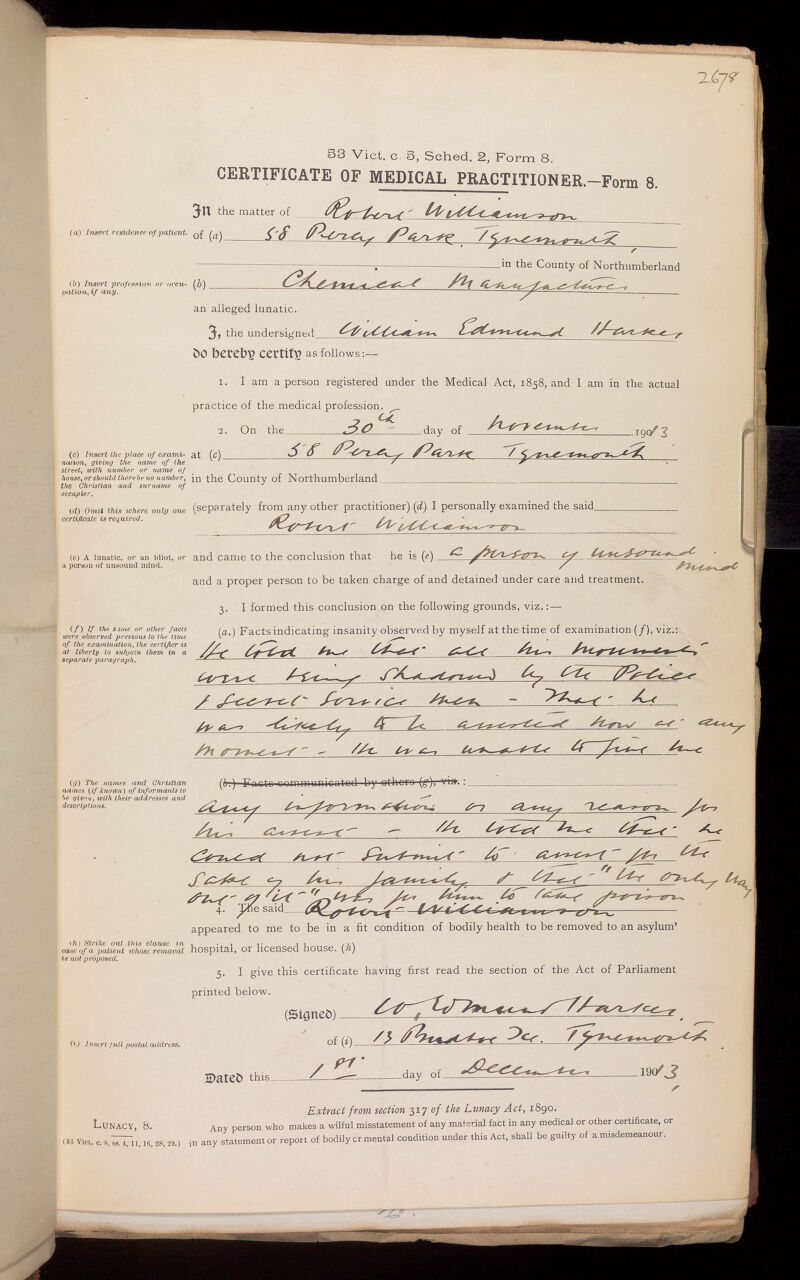 2678
53 Vict. c. 5, Sched. 2, Form 8.
CERTIFICATE OF MEDICAL PRACTITIONER.—Form 8.
In the matter of Robert Williamson
(a) Insert residence of patient.
of (a) 58 Percy Park, Tynemouth,
in the County of Northumberland
(b) Insert profession or occu-
pation, if any.
(b) Chemical Manufacturer
an alleged lunatic.
I, the undersigned William Edmund Harker
do hereby certify as follows:—
1. I am a person registered under the Medical Act, 1858, and I am in the actual
practice of the medical profession.
2. On the 30th day of November 1903
(c) Insert the place of exami-
nation, giving the name of the
street, with number or name of
house, or should there be no number,
the Christian and surname of
occupier.
at (c) 58 Percy Park Tynemouth
in the County of Northumberland
(d) Omit this where only one
certificate is required.
(separately from any other practitioner) (d) I personally examined the said
Robert Williamson
(e) A lunatic, or an idiot, or
a person of unsound mind.
and came to the conclusion that he is (e) a person of unsound
mind
and a proper person to be taken charge of and detained under care and treatment.
3. I formed this conclusion on the following grounds, viz.:—
(f) If the same or other facts
were observed previous to the time
of the examination, the certifier is
at liberty to subjoin them in a
separate paragraph.
(a.) Facts indicating insanity observed by myself at the time of examination (f), viz.:
He told me that all his movements
were being shadowed by the Police
& Secret Service men - That he
was likely to be arrested now at any
moment - He was unable to give me
(g) The names and Christian
names (if known) of informants to
be given, with their addresses and
descriptions.
(b.) Facts communicated by others (g), viz.:
any information or any reason for
his arrest - He told me that he
could not submit to arrest for the
sake of his family & that "the only way
out of it" was for him to take poison
4. The said Robert Williamson
appeared to me to be in a fit condition of bodily health to be removed to an asylum'
(h) Strike out this clause in
case of a patient whose removal
is not proposed.
hospital, or licensed house. (h)
5. I give this certificate having first read the section of the Act of Parliament
printed below.
(Signed) W. Edmund Harker.
(i) Insert full postal address.
of (i) 13 Tynemouth
Dated this 1st day of December 1903
Extract from section 317 of the Lunacy Act, 1890.
LUNACY, 8.
(53 Vict. c. 5, ss. 4, 11, 16, 28, 29.)
Any person who makes a wilful misstatement of any material fact in any medical or other certificate, or
in any statement or report of bodily or mental condition under this Act, shall be guilty of a misdemeanour.